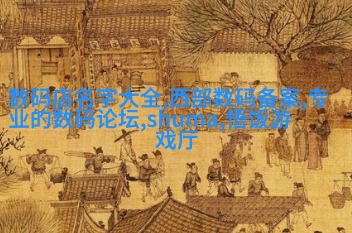 数码店名字大全,西部数码备案,专
业的数码论坛,shuma,悟饭游
戏厅